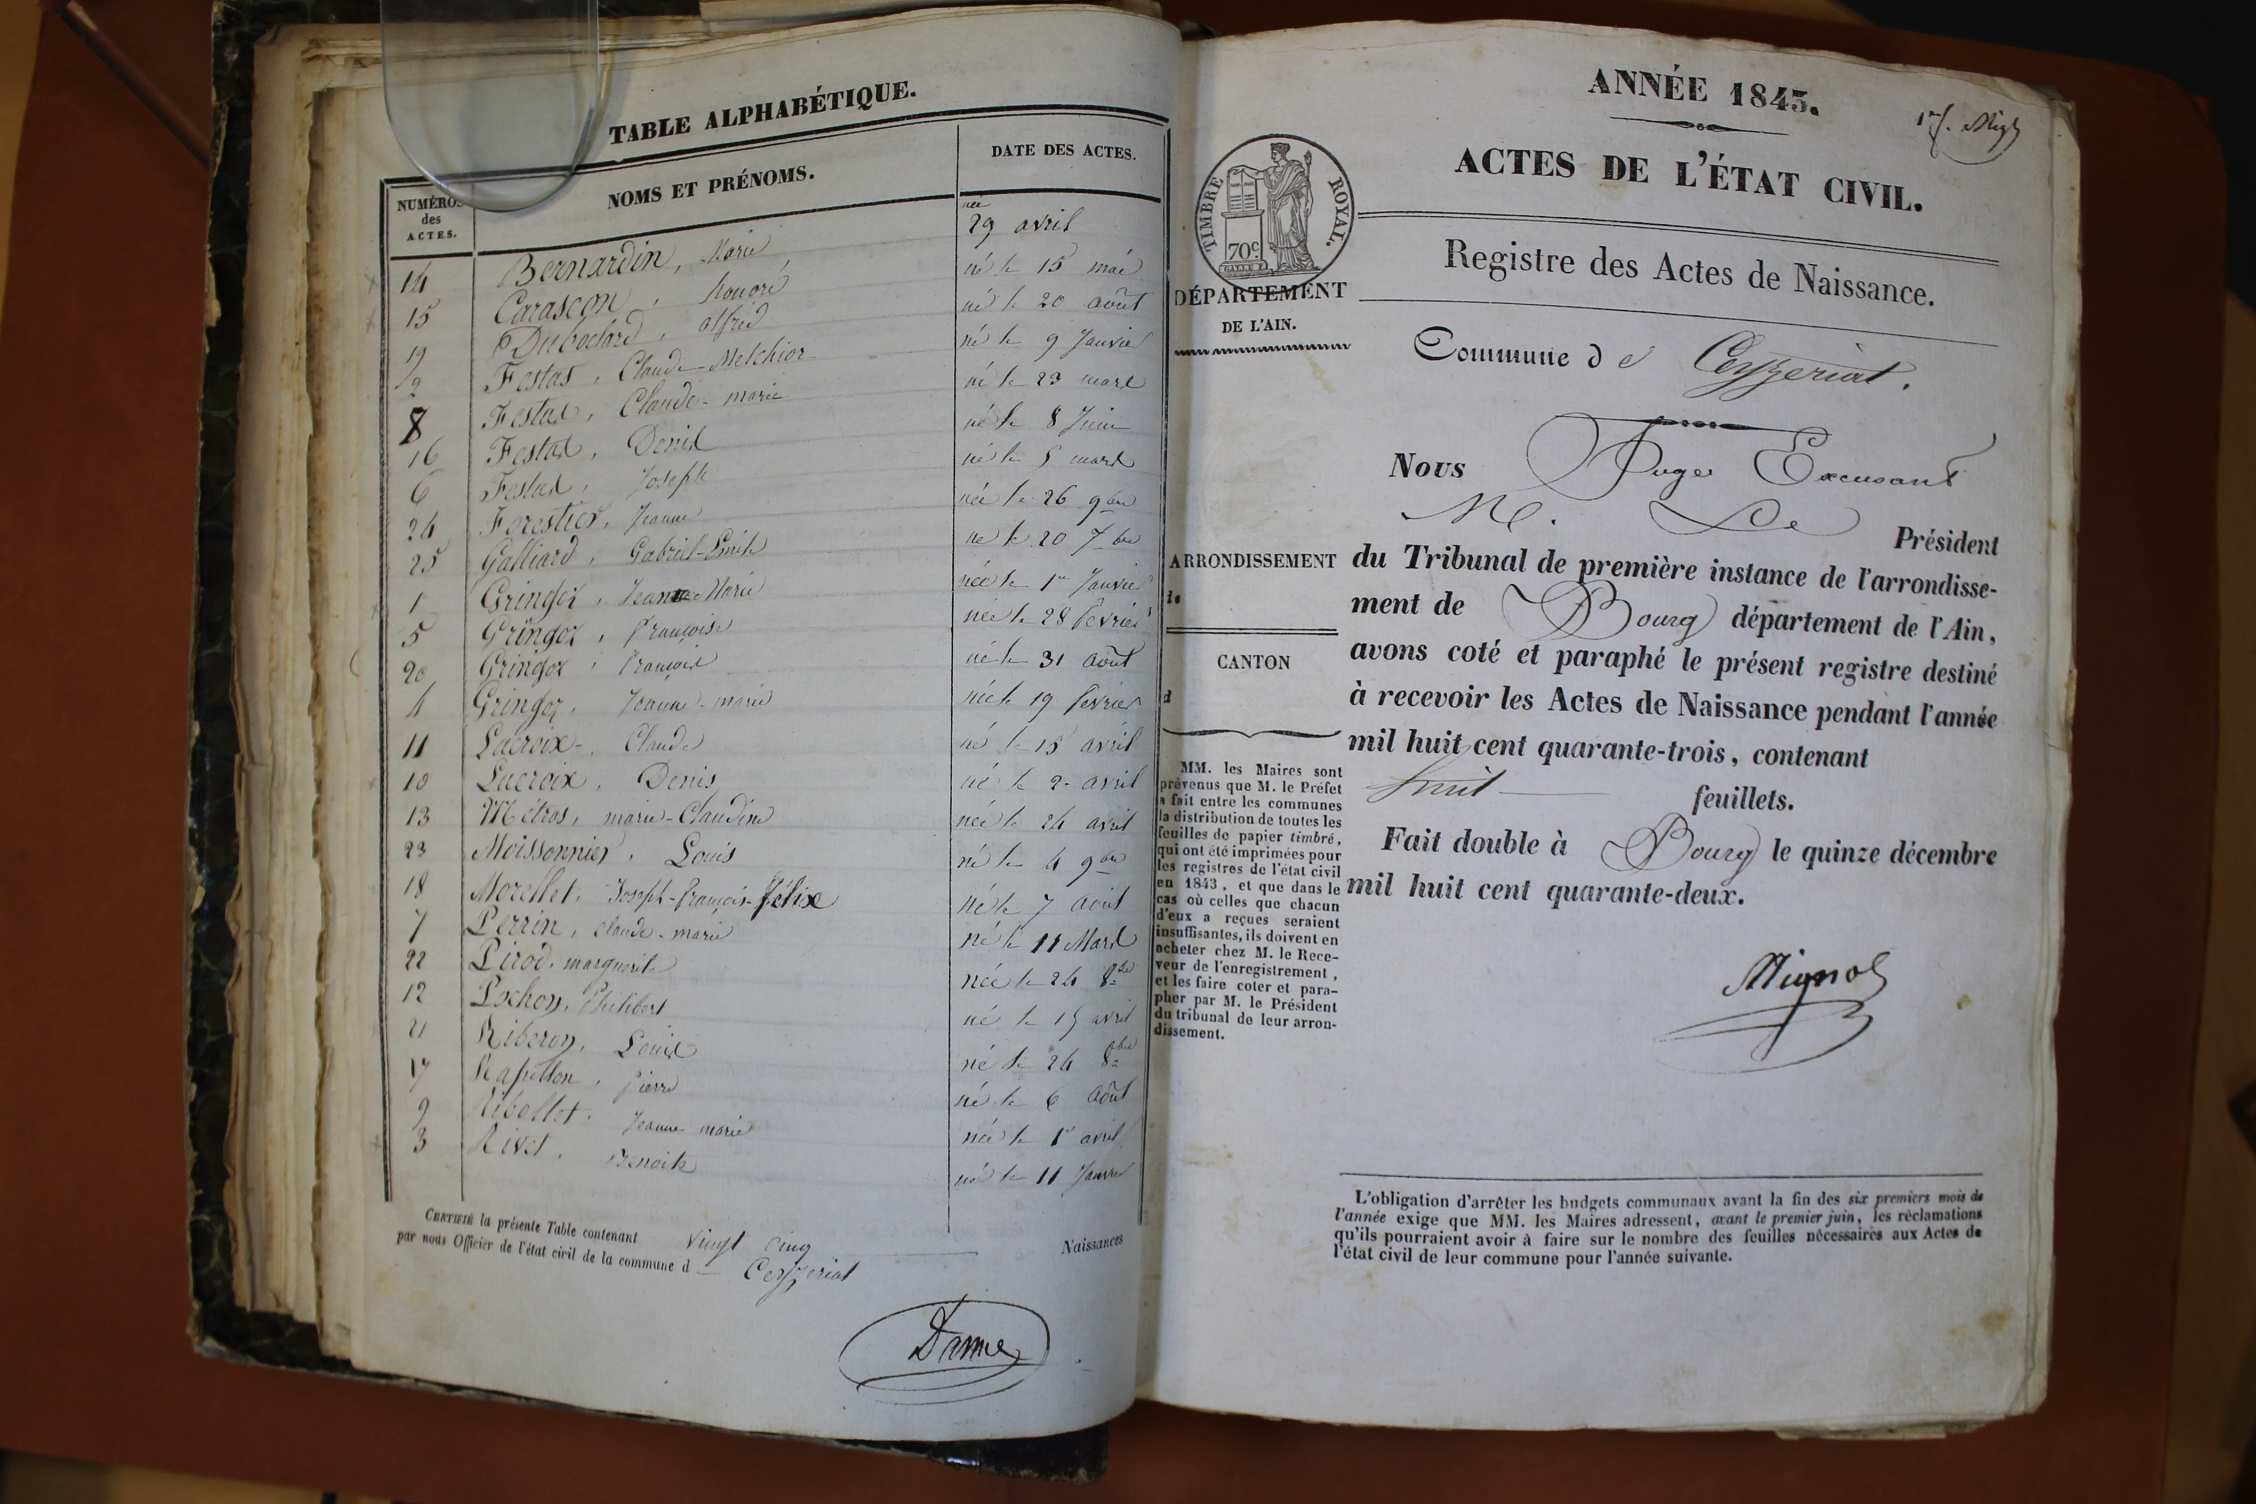 TABLE ALPHABÉTIQUE.
NUMÉROS des ACTES. NOMS ET PRÉNOMS. DATE DES ACTES.
14 Bernardin, Marie née 29 avril
15 Carascon, honoré né le 15 mai
19 Duboclard, alfred né le 20 août
2 Festas, Claude-Melchior né le 9 Janvier
8 Festas, Claude-marie né le 23 mars
16 Festas, Denis né le 8 Juin
6 Festas, Joseph né le 5 mars
24 Forestier, Jeanne née le 26 9bre
25 Galliard, Gabriel-Emile né le 20 7bre
1 Gringoz, Jeanne-Marie née le 1er Janvier
5 Gringoz, françoise née le 28 février
20 Gringoz, françois né le 31 août
4 Gringoz, Jeanne-marie née le 19 février
11 Lacroix, Claude né le 15 avril
10 Lacroix, Denis né le 2 avril
13 Métras, marie-Claudine née le 24 avril
23 Moissonnier, Louis né le 4 9bre
18 Morellet, Joseph-françois-félix né le 7 août
7 Perrin, claude-marie né le 11 Mars
22 Pirod, marguerite née le 24 8bre
12 Pochon, Philibert né le 19 avril
21 Riberon, Louis né le 24 8bre
17 Rafillon, pierre né le 6 août
9 Ribollet, Jeanne marie née le 1er avril
3 Rivet, Benoite née le 11 Janvier
CERTIFIÉ la présente Table contenant vingt cinq Naissances
par nous Officier de l'état civil de la commune d Ceyzeriat
Darme
1er f. Mig
ANNÉE 1843.
ACTES DE L'ÉTAT CIVIL.
TIMBRE ROYAL.
70c
Registre des Actes de Naissance.
DÉPARTEMENT
DE L'AIN.
Commune de Ceyzeriat.
Nous Juge Excusant
M. Le Président
ARRONDISSEMENT
de
du Tribunal de première instance de l'arrondisse-
ment de Bourg département de l'Ain,
avons coté et paraphé le présent registre destiné
à recevoir les Actes de Naissance pendant l'année
mil huit cent quarante-trois, contenant
huit feuillets.
Fait double à Bourg le quinze décembre
mil huit cent quarante-deux.
Mignot
CANTON
d
MM. les Maires sont
prévenus que M. le Préfet
a fait entre les communes
la distribution de toutes les
feuilles de papier timbré,
qui ont été imprimées pour
les registres de l'état civil
en 1843, et que dans le
cas où celles que chacun
d'eux a reçues seraient
insuffisantes, ils doivent en
acheter chez M. le Rece-
veur de l'enregistrement,
et les faire coter et para-
pher par M. le Président
du tribunal de leur arron-
dissement.
L'obligation d'arrêter les budgets communaux avant la fin des six premiers mois de
l'année exige que MM. les Maires adressent, avant le premier juin, les réclamations
qu'ils pourraient avoir à faire sur le nombre des feuilles nécessaires aux Actes de
l'état civil de leur commune pour l'année suivante.